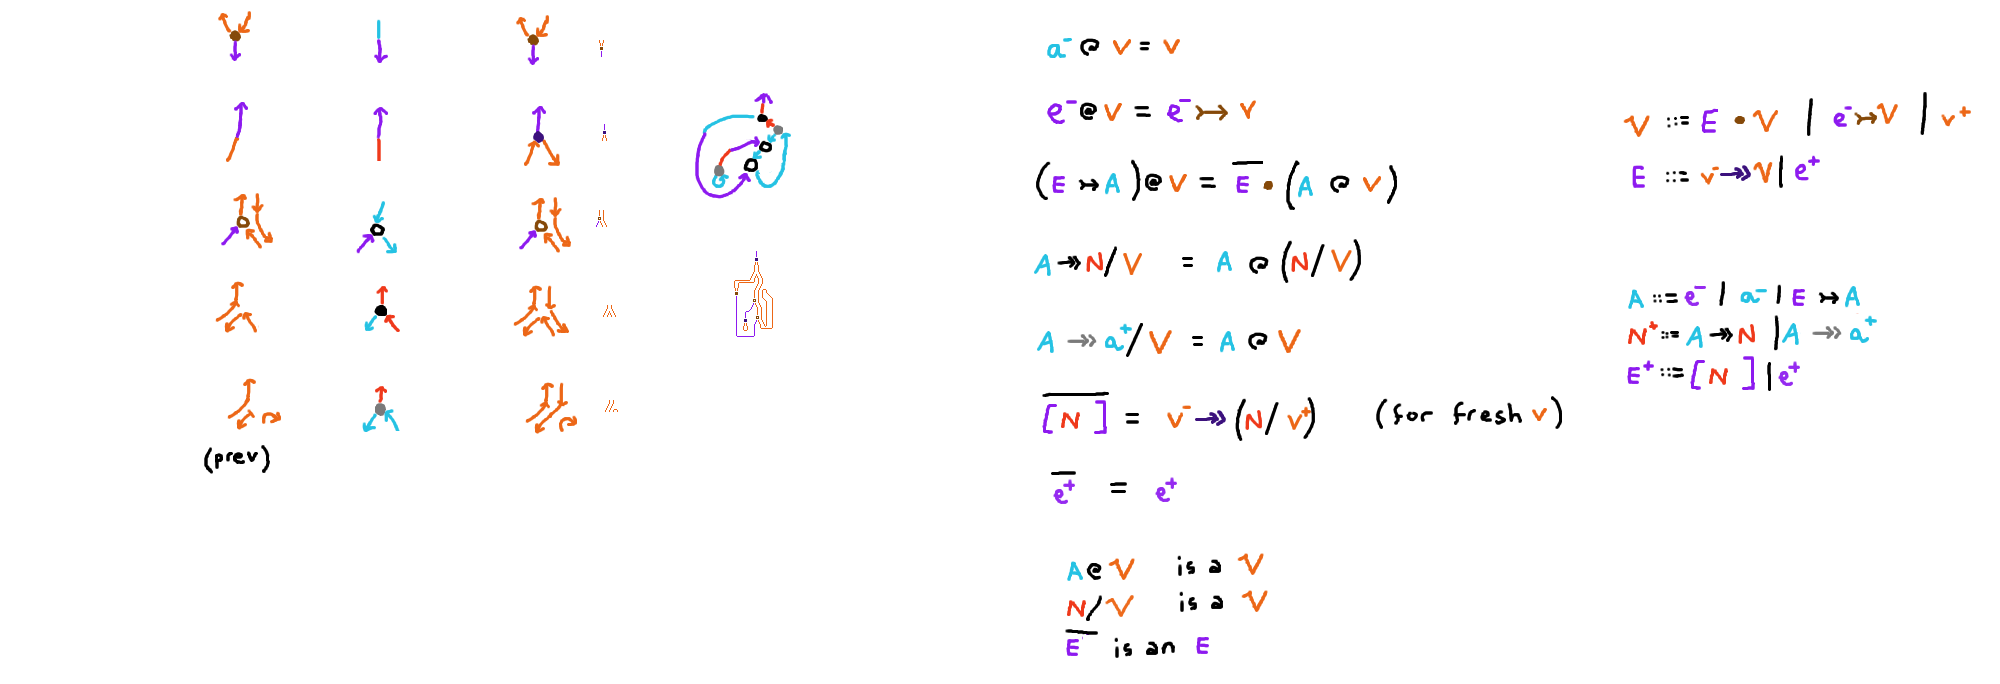 (prev)
a⁻ @ V = V
e⁻ @ V = e⁻ ↣ V
(E ↣ A) @ V = E̅ • (A @ V)
A ↠ N / V = A @ (N / V)
A ↠ a⁺ / V = A @ V
[N]̅ = v⁻ ↠ (N / v⁺) (for fresh v)
e̅⁺ = e⁺
A @ V is a V
N / V is a V
E̅ is an E
V ::= E • V | e⁻ ↣ V | v⁺
E ::= v⁻ ↠ V | e⁺
A ::= e⁻ | a⁻ | E ↣ A
N⁺ ::= A ↠ N | A ↠ a⁺
E⁺ ::= [N] | e⁺